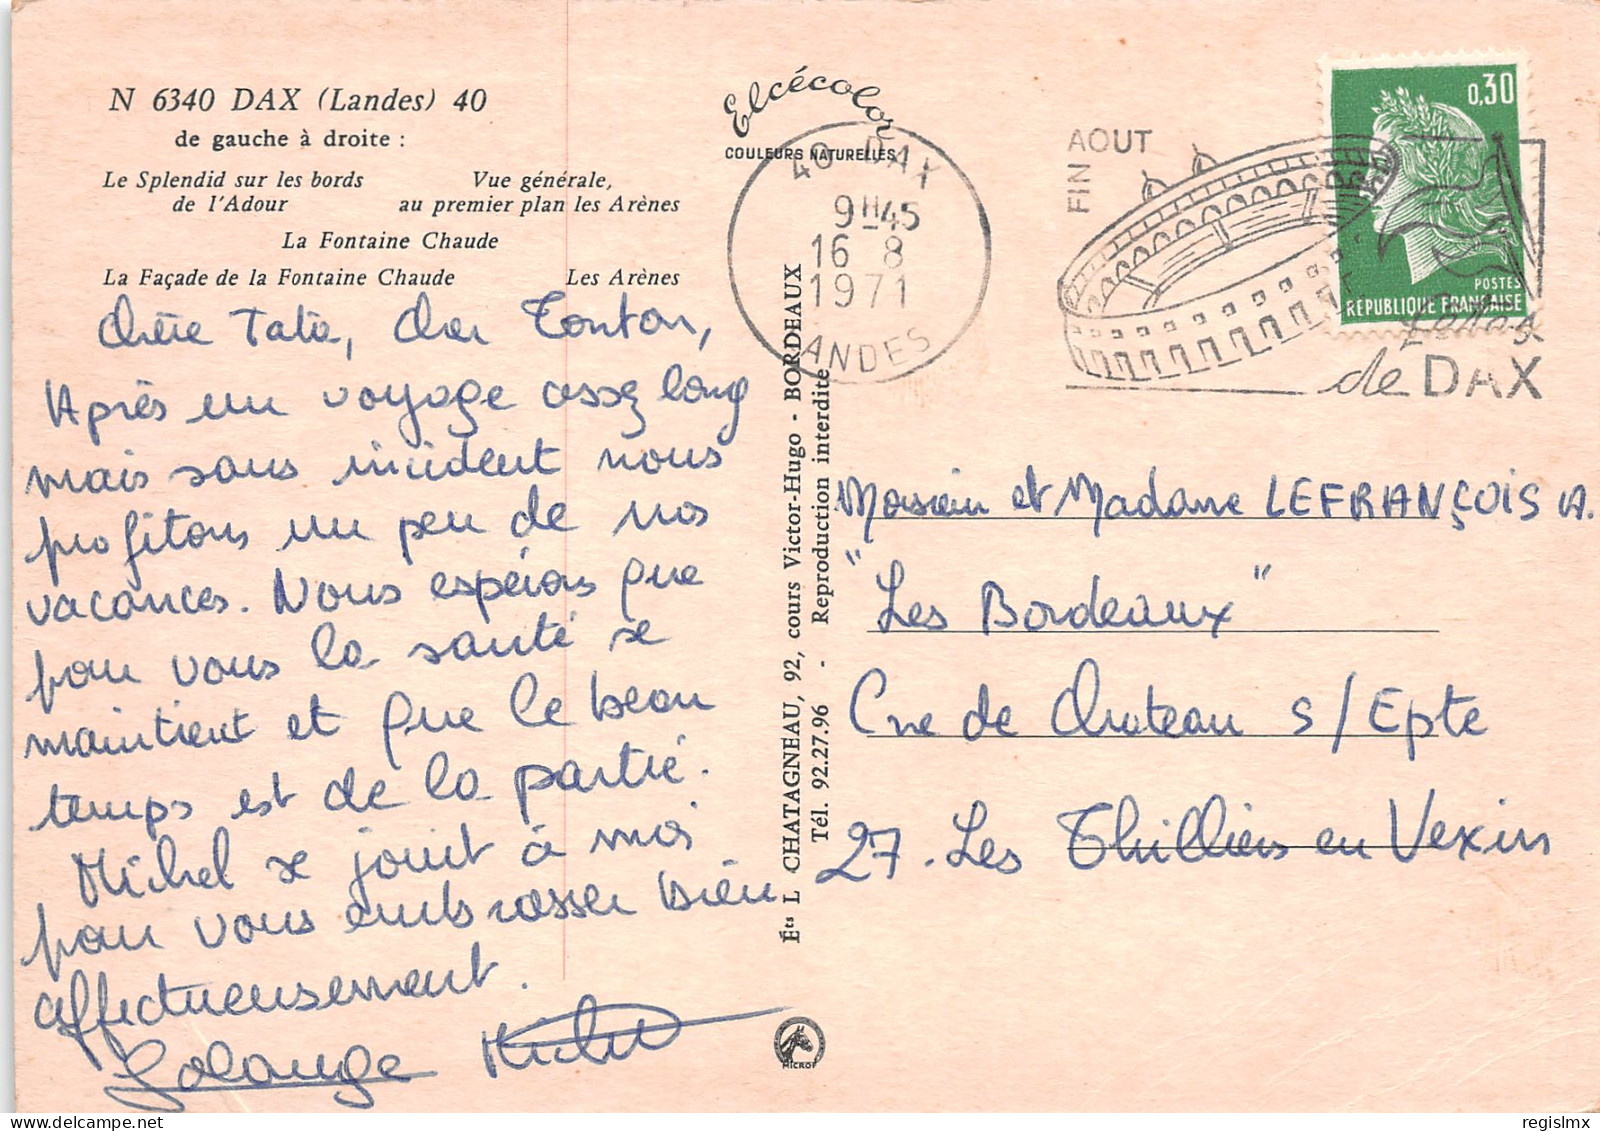 N 6340 DAX (Landes) 40
de gauche à droite :
Le Splendid sur les bords
de l'Adour
Vue générale,
au premier plan les Arènes
La Fontaine Chaude
La Façade de la Fontaine Chaude
Les Arènes
Chère Tata, cher Tonton,
Après un voyage assez long
mais sans incident nous
profitons un peu de nos
vacances. Nous espérons que
pour vous la santé se
maintient et que le beau
temps est de la partie.
Michel se joint à moi
pour vous embrasser bien
affectueusement.
Solange Michel
Elcécolor
COULEURS NATURELLES
Éts L CHATAGNEAU, 92, cours Victor-Hugo - BORDEAUX
Tél. 92.27.96 - Reproduction interdite
MICRO
40 DAX
9H45
16 8
1971
LANDES
FIN AOUT
de DAX
0,30
POSTES
REPUBLIQUE FRANÇAISE
Monsieur et Madame LEFRANÇOIS A.
"Les Bordeaux"
Cne de Chateau s/Epte
27. Les Thilliers en Vexin
regislmx
delcampe.net